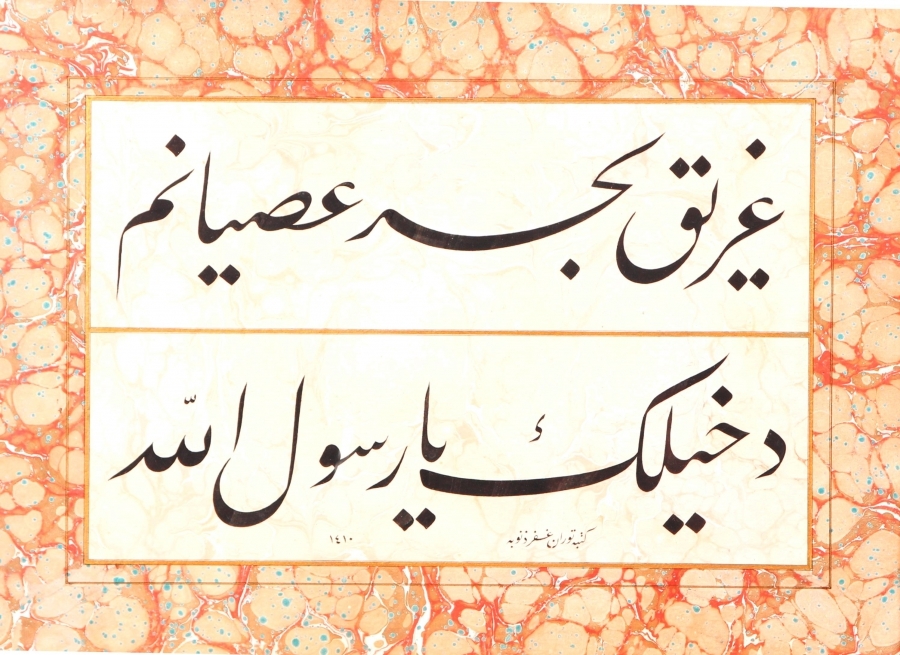 غريق بحر عصيانم
دخيلك يا رسول الله
كتبه توران غفر ذنوبه ١٤١٠